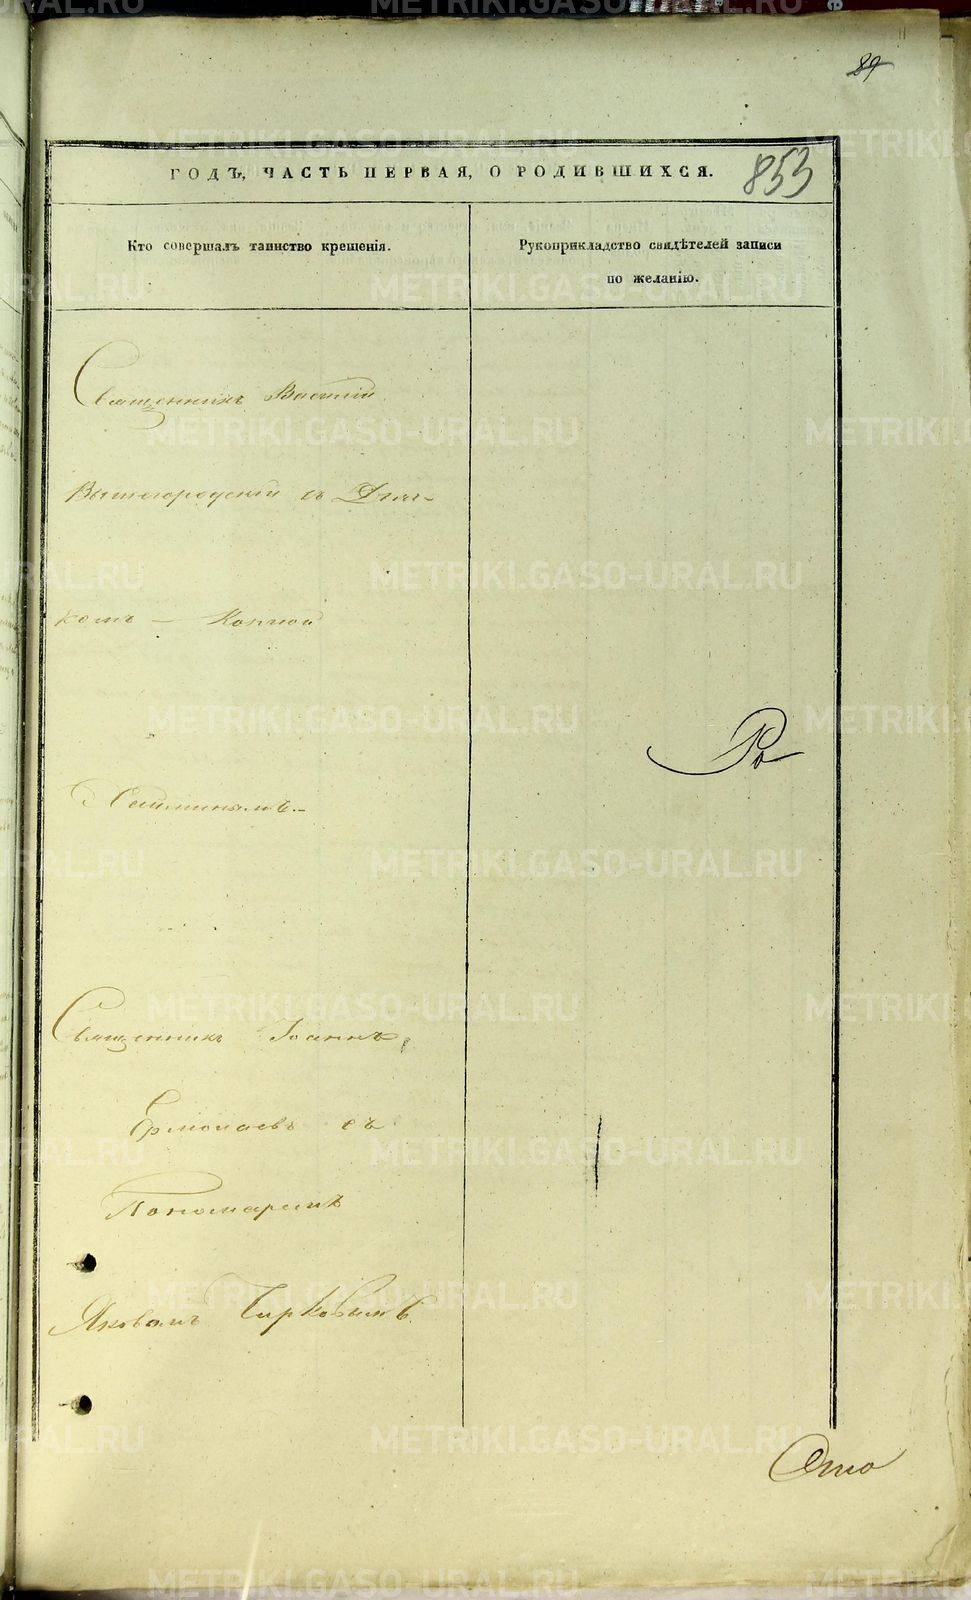 89
ГОДЪ, ЧАСТЬ ПЕРВАЯ, О РОДИВШИХСЯ.
853
Кто совершалъ таинство крещенія.
Рукоприкладство свидѣтелей записи
по желанію.
Священникъ
Вышегородскій съ Дьяч-
комъ —
Священникъ Іоаннъ
Ермолаевъ съ
Пономаремъ
Яковомъ Бирковымъ
METRIKI.GASO-URAL.RU